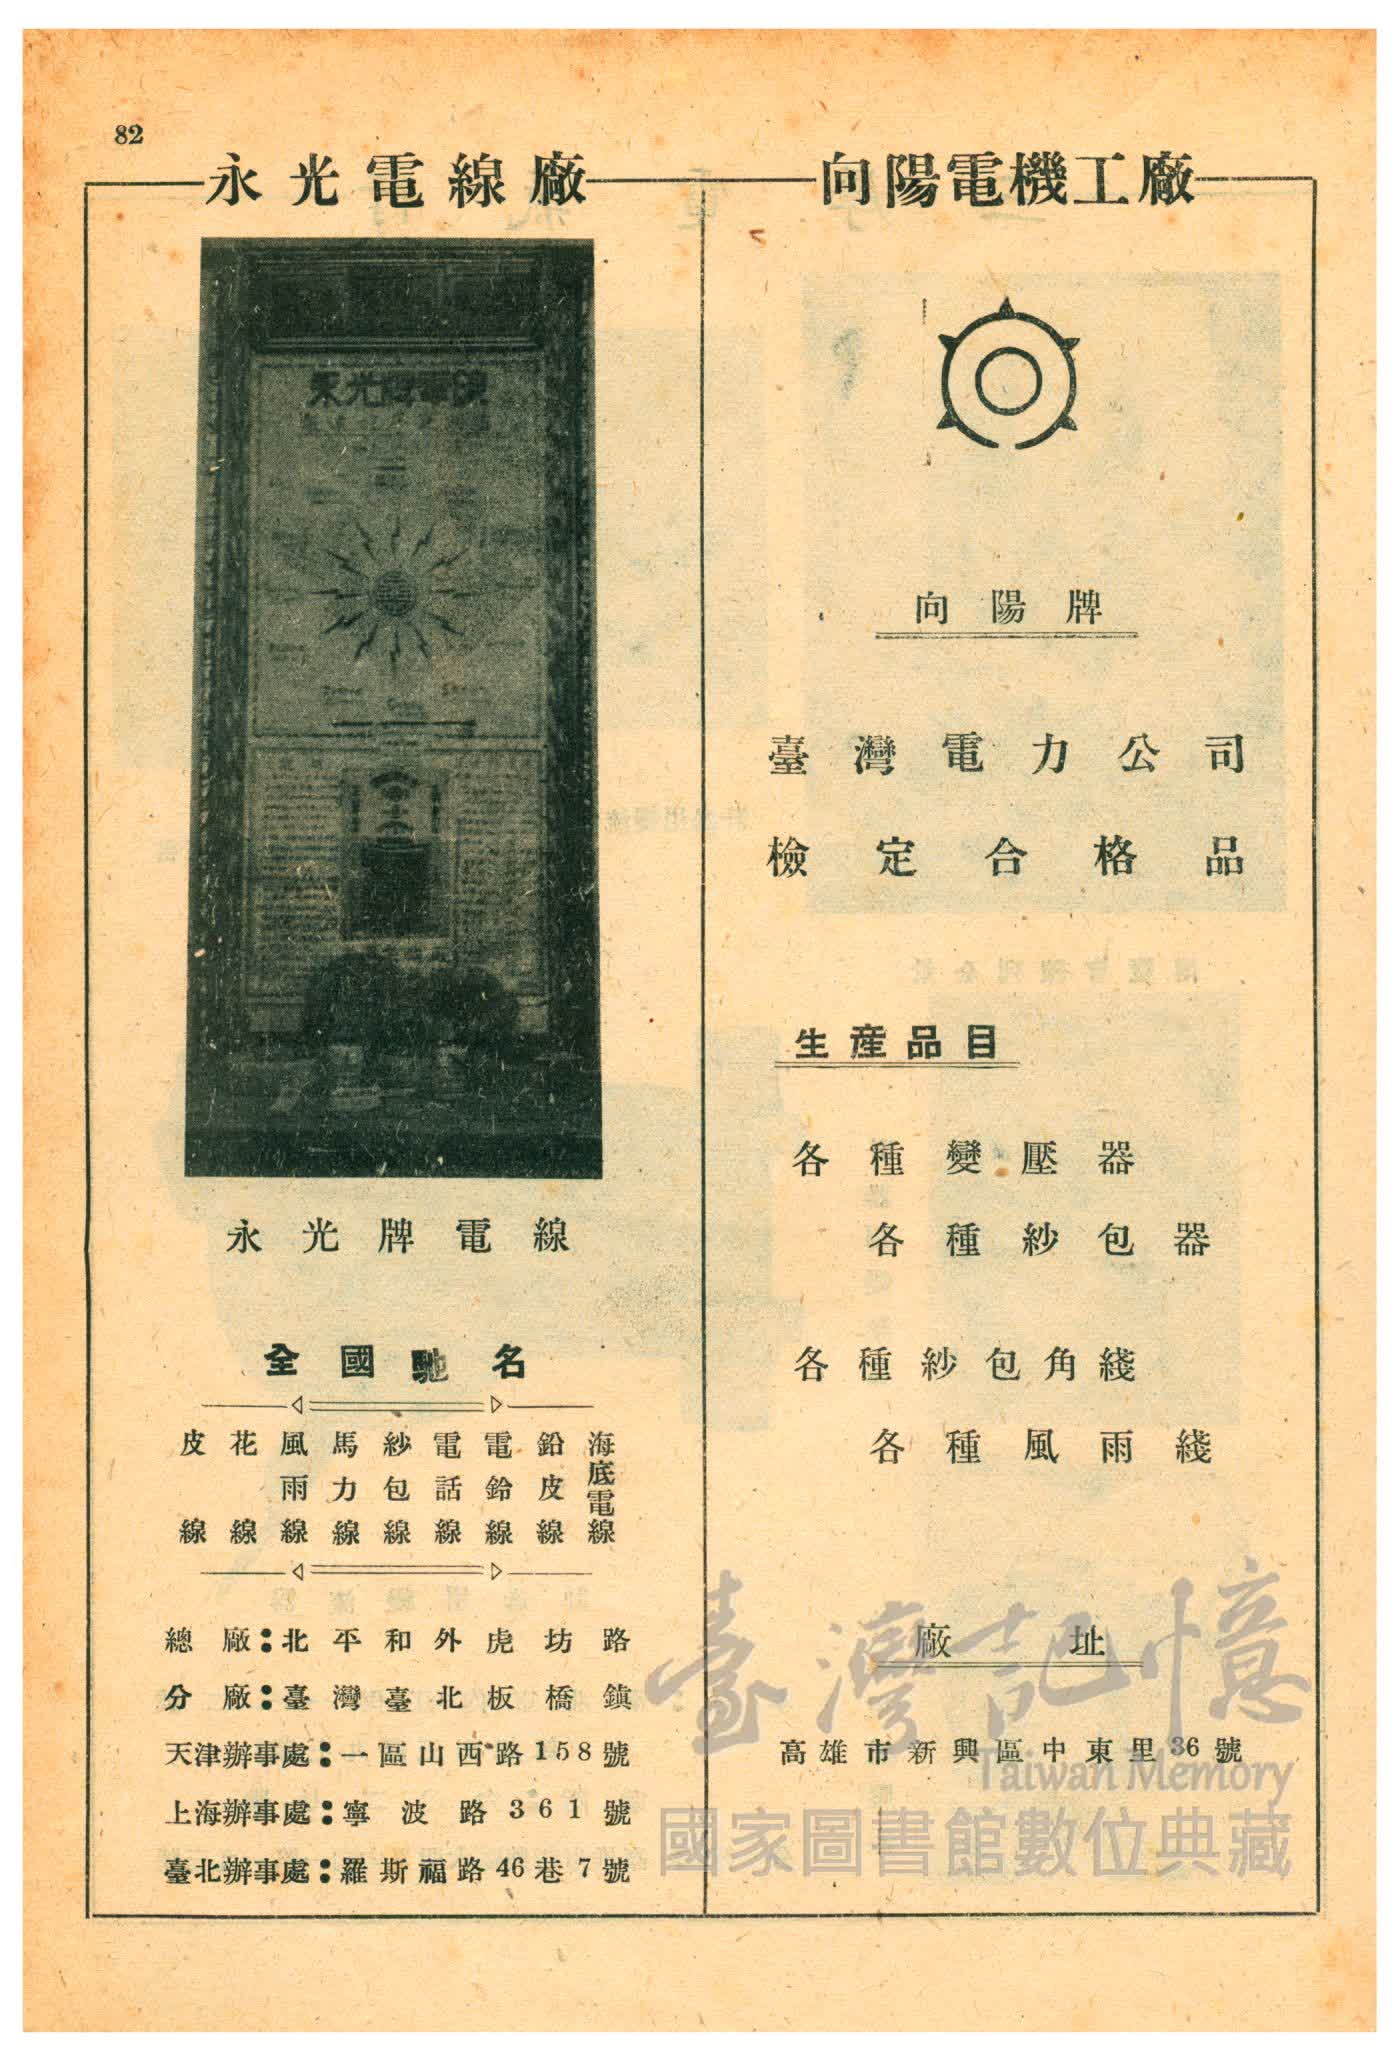 82
永光電線廠
永光牌電線
全國馳名
皮線
花線
風雨線
馬力線
紗包線
電話線
電鈴線
鉛皮線
海底電線
總廠：北平和外虎坊路
分廠：臺灣臺北板橋鎮
天津辦事處：一區山西路158號
上海辦事處：寧波路361號
臺北辦事處：羅斯福路46巷7號
向陽電機工廠
向陽牌
臺灣電力公司
檢定合格品
生產品目
各種變壓器
各種紗包器
各種紗包角綫
各種風雨綫
廠址
高雄市新興區中東里36號
臺灣記憶
Taiwan Memory
國家圖書館數位典藏